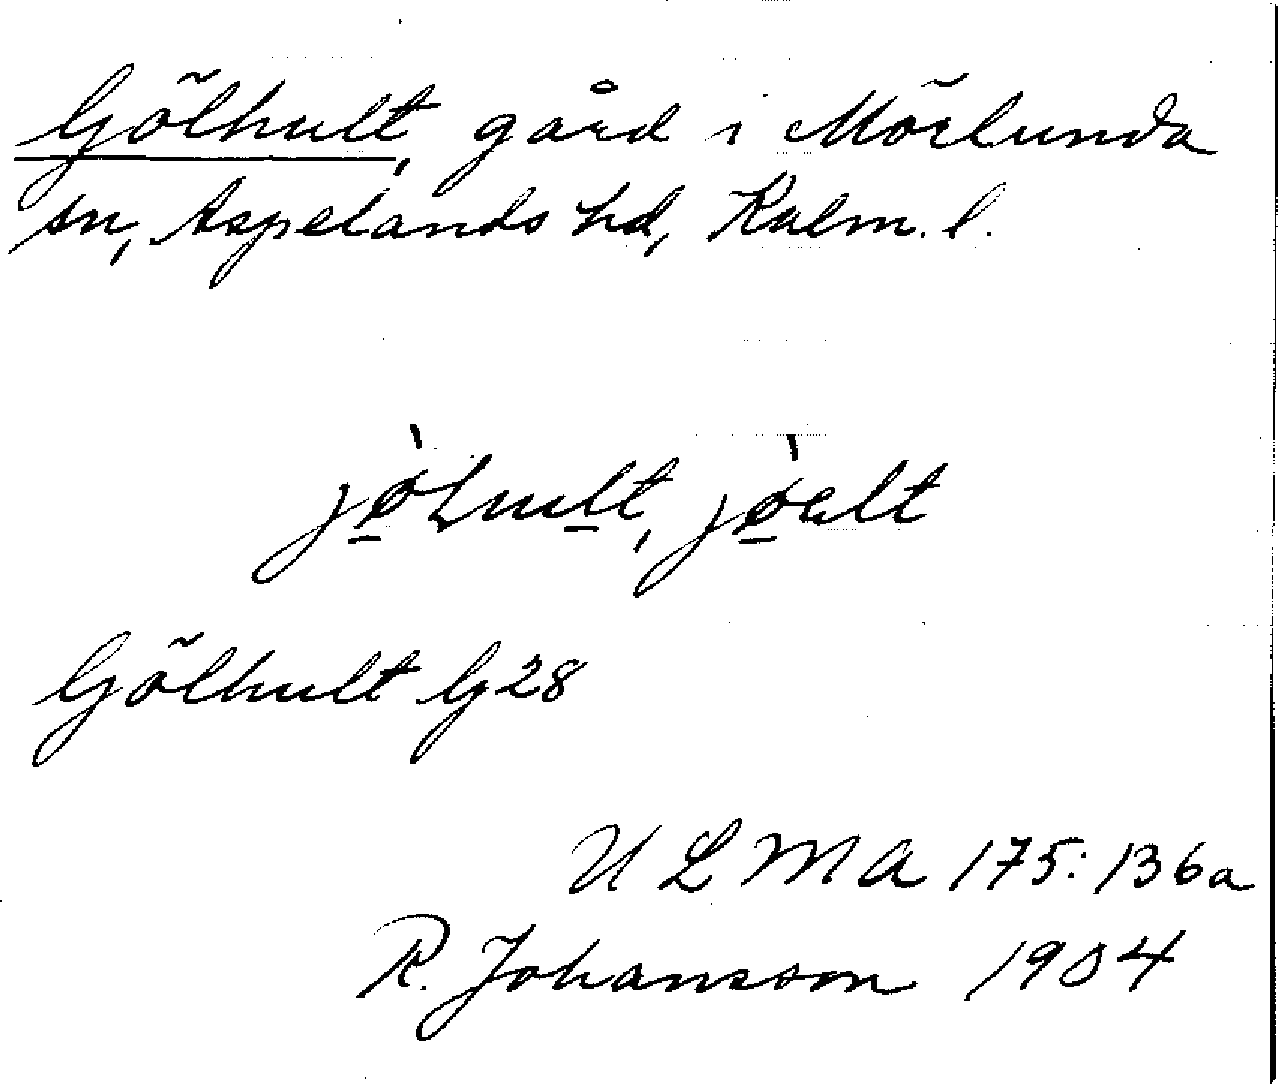 Gölhult, gård i Mörlunda
sn, Aspelands hd, Kalm. l.
jøLult, jøalt
Gölhult G28
ULMA 175:136a
R. Johansson 1904